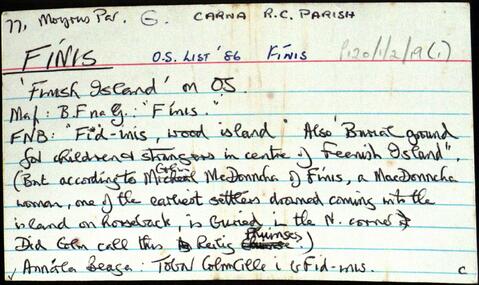 77, Moyrus Par. G. CARNA R.C. PARISH
FÍNIS O.S. LIST '86 FÍNIS P120/1/2/9(1)
'Finish Island' on OS.
Map: B.F na G.: "Fínis."
FNB: "Fid-inis, wood island" Also "Burial ground
for children & strangers in centre of Feenish Island".
(But according to Colm McDonncha of Fínis, a MacDonncha
woman, one of the earliest settlers drowned coming into the
island on horseback, is buried in the N. corner
Did Colm call this Reilig)
Annála Beaga: Tobar Colmcille i bFid-inis.
C